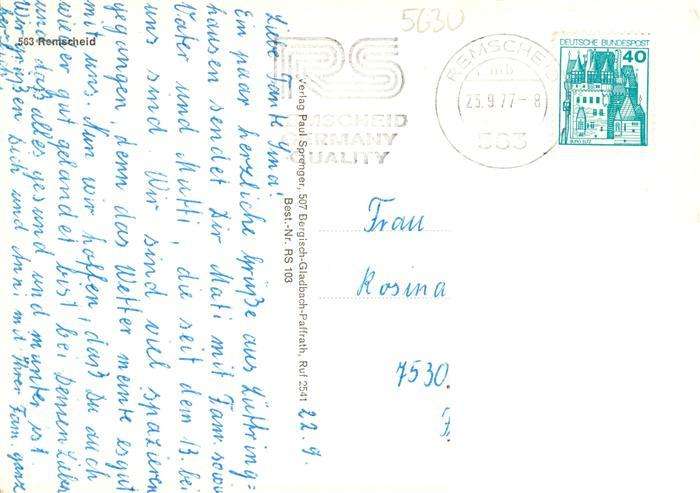 5630
563 Remscheid
RS
REMSCHEID
GERMANY
QUALITY
REMSCHEID
mb
23.9.77-8
563
DEUTSCHE BUNDESPOST
40
BURG ELTZ
Verlag Paul Sprenger, 507 Bergisch-Gladbach-Paffrath, Ruf 2541
Best.-Nr. RS 103
22.9.
Liebe Tante
Ein paar herzliche Grüße aus Lüttring=
hausen sendet Dir Mati mit Fam. sowie
Vater und Mutti, die seit dem 13. bei
uns sind. Wir sind viel spazieren
gegangen, denn das Wetter meinte es gut
mit uns. Nun wir hoffen, daß Du auch
wieder gut gelandet bist bei Deinen Lieben
und daß alles gesund und munter ist.
grüßen Dich und Anni mit Ihrer Fam. ganz
Frau
Rosina
7530.